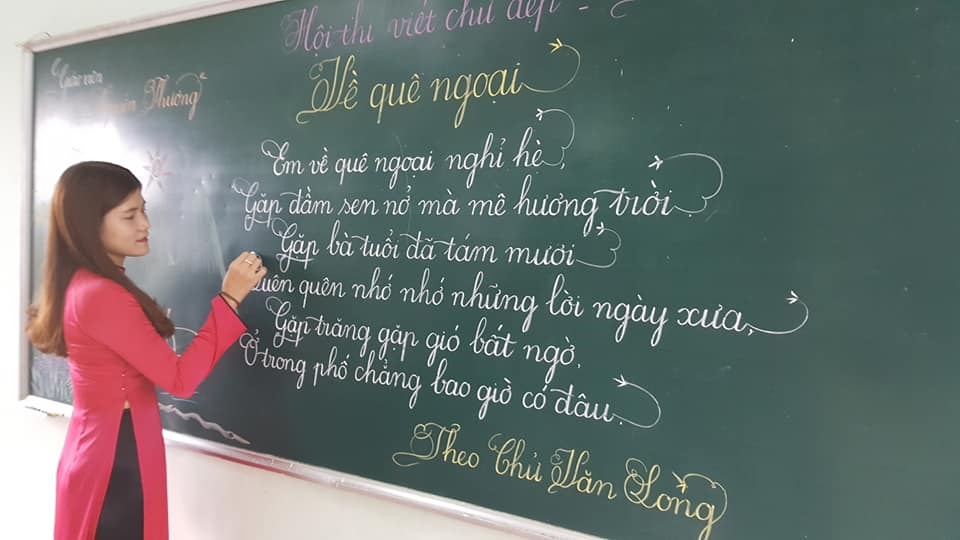 Hội thi viết chữ đẹp -
Giáo viên
Thương
Về quê ngoại
Em về quê ngoại nghỉ hè,
Gặp đầm sen nở mà mê hương trời.
Gặp bà tuổi đã tám mươi
Quên quên nhớ nhớ những lời ngày xưa,
Gặp trăng gặp gió bất ngờ,
Ở trong phố chẳng bao giờ có đâu.
Theo Chử Văn Long